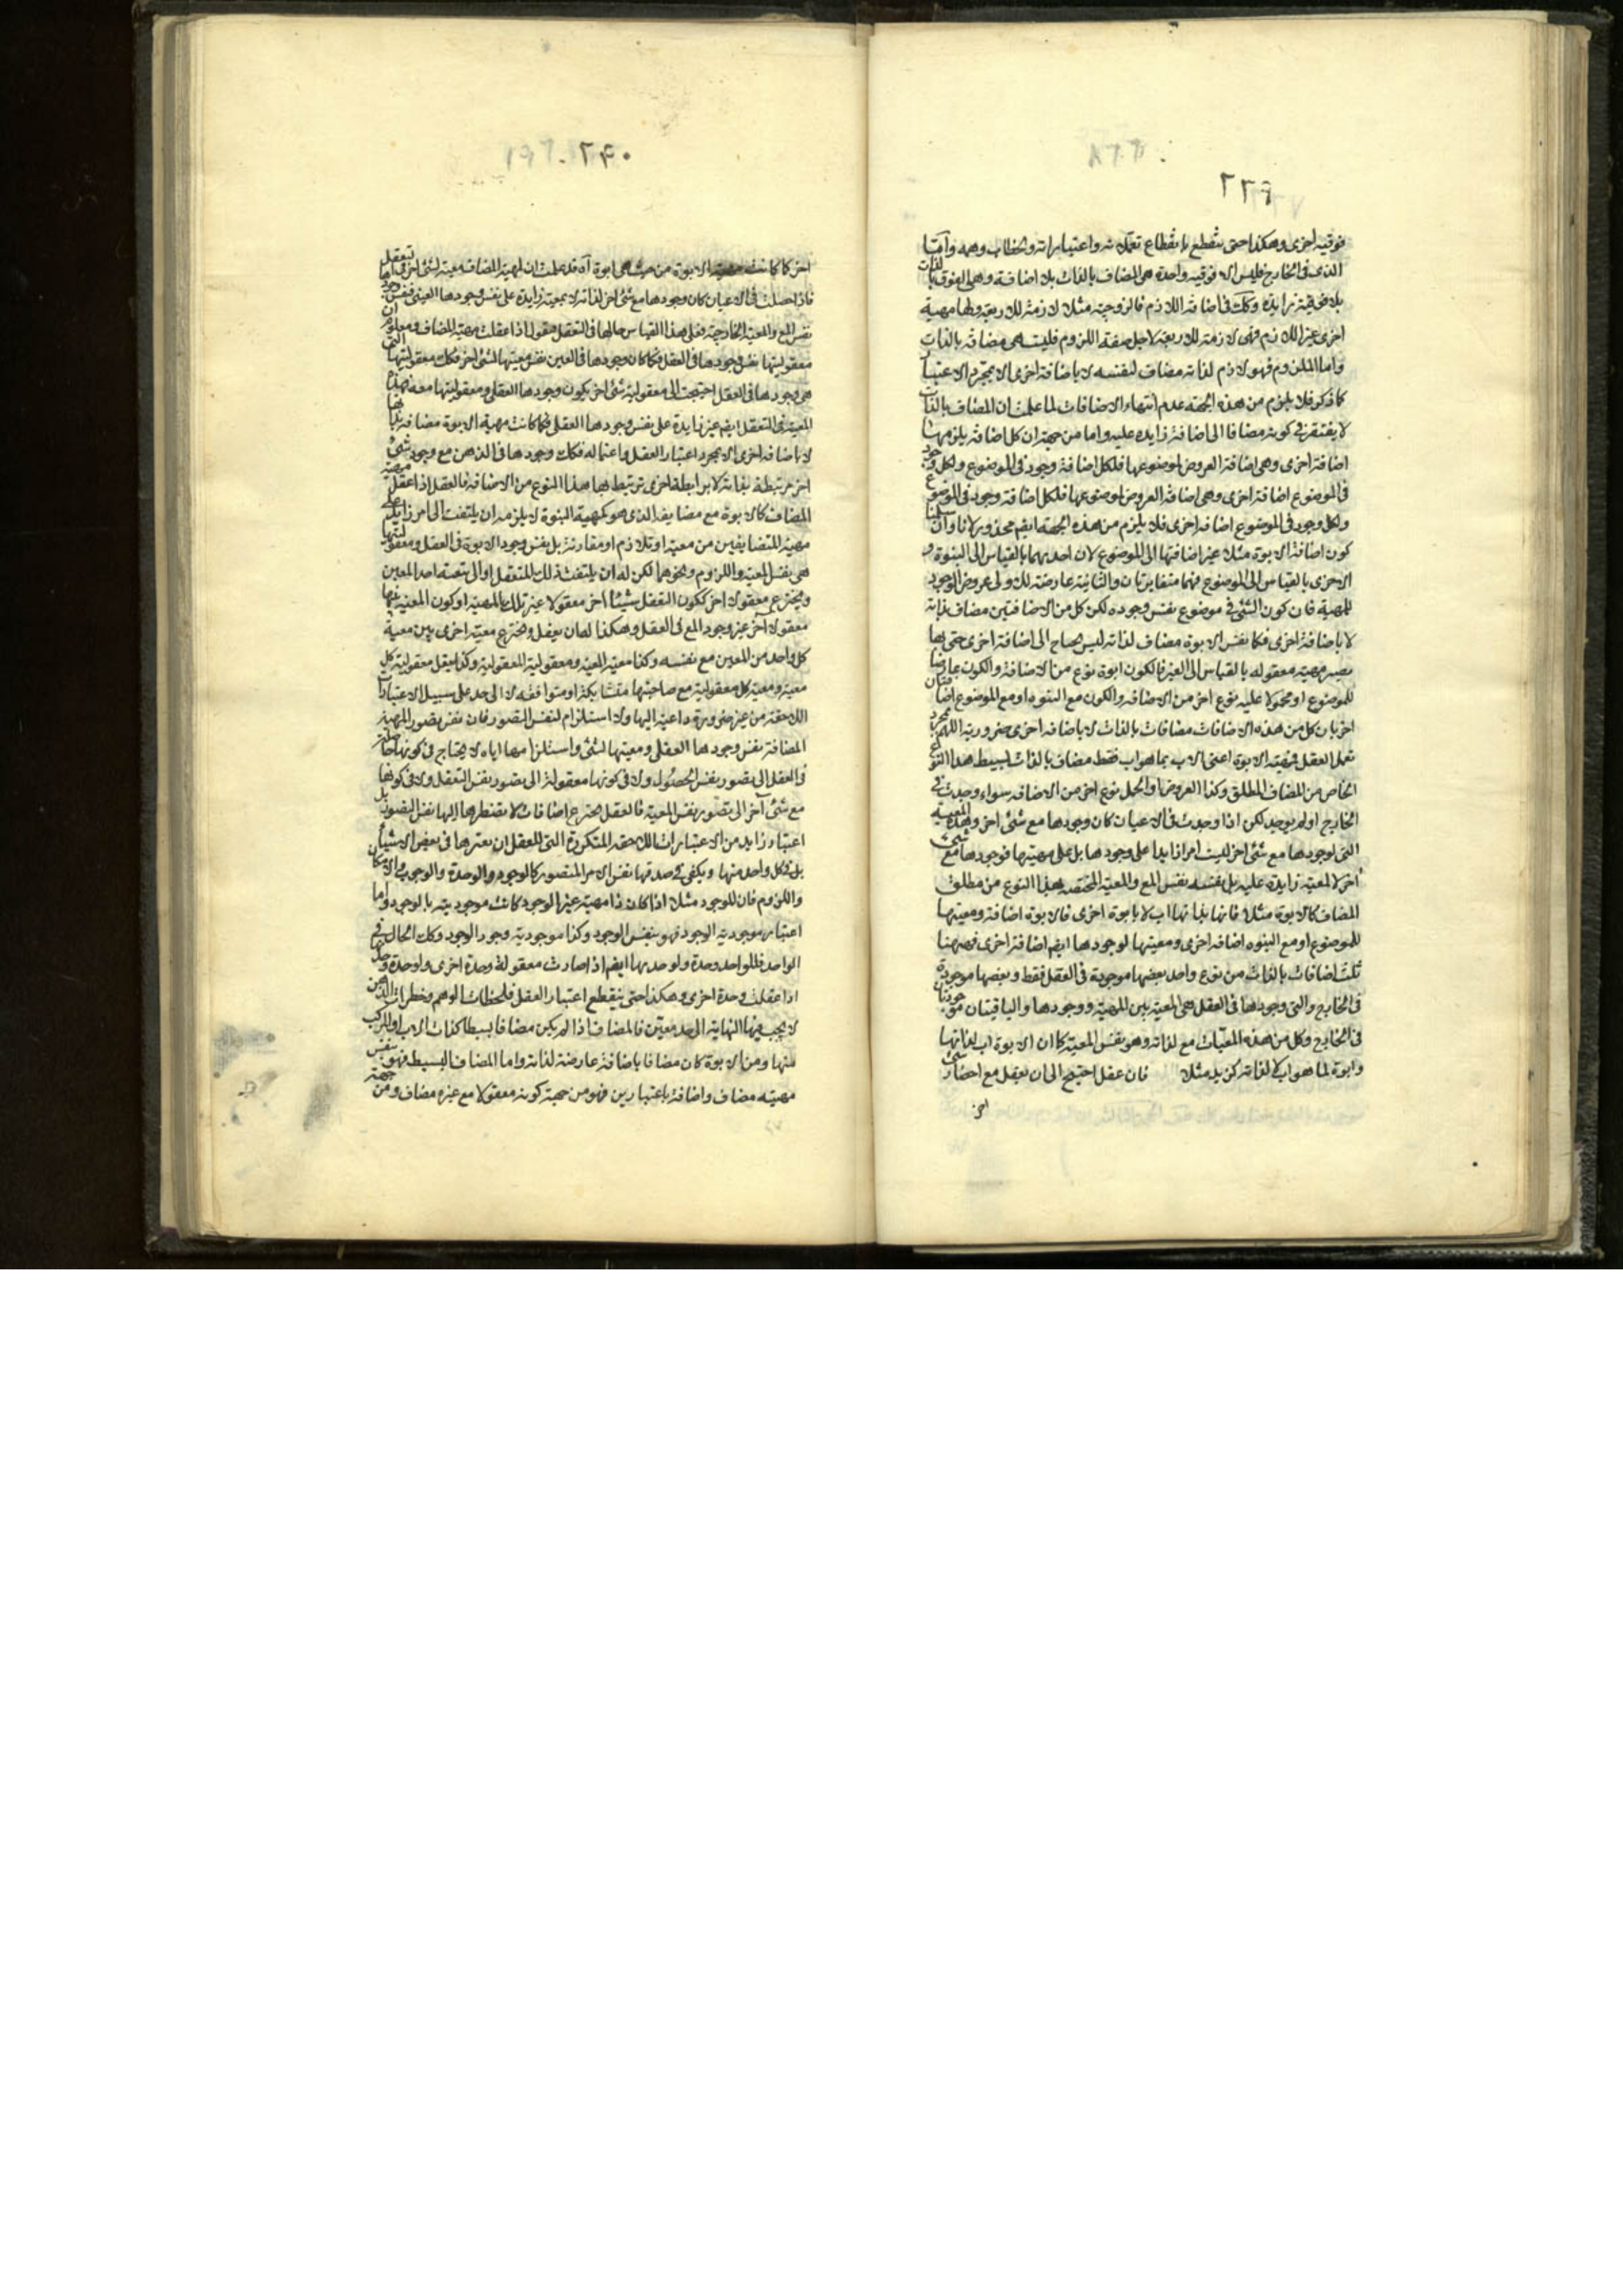 ٢٦٩
فوقيه اخرى وهكذا حتى ينقطع بانقطاع تعملاته واعتباراته وخطاب وهمه واما
الذى فى الخارج فليس الا فوقيه واحدة هى المضاف بالذات بلا اضافة وهى الفوق بالذات
بلا فوقية زايدة وكك فى اضافه اللازم فالزوجيه مثلا لازمة للاربعة ولها مهية
اخرى غير اللازم فهى لازمة للاربعة لاجل صفة اللزوم فليست هى مضافه بالذات
واما اللزوم فهو لازم لذاته مضاف لنفسه لا باضافة اخرى الا بمجرد الاعتبار
كما ذكر فلا يلزم من هذه الجهة عدم انتهاء الاضافات لما علمت ان المضاف بالذات
لا يفتقر فى كونه مضافا الى اضافة زايدة عليه واما من جهة ان كل اضافة يلزمها
اضافة اخرى وهى اضافة العروض لموضوعها فلكل اضافة وجود فى الموضوع ولكل وجود
فى الموضوع اضافة اخرى وهى اضافة العروض لموضوعها فلكل اضافة وجود فى الموضوع
ولكل وجود فى الموضوع اضافه اخرى فلا يلزم من هذه الجهة ايضم محذور لانا وان سلمنا
كون اضافة الابوة مثلا غير اضافتها الى الموضوع لان احديهما بالقياس الى البنوة و
الاخرى بالقياس الى الموضوع فهما متغايرتان والثانية عارضة لك ولى عروض الوجود
للمهية فان كون الشئ فى موضوع نفس وجوده لكن كل من الاضافتين مضاف بذاته
لا باضافة اخرى فكما نفس الابوة مضاف لذاته ليس يحتاج الى اضافة اخرى حتى بها
يصير مهيته معقوله بالقياس الى الغير فالكون ابوة نوع من الاضافة والكون عارضا
للموضوع او محمولا عليه نوع اخر من الاضافه والكون مع البنوه او مع الموضوع اضافتان
اخريان كل من هذه الاضافات مضافات بالذات لا باضافه اخرى ضرورية اللهم بمجرد
تعمل العقل فقضيه الابوة اعنى الاب بما هو اب فقط مضاف بالذات لبسيط هذا النوع
الخاص من المضاف المطلق وكذا العروض او الحمل نوع اخر من الاضافه سواء وجدت فى
الخارج او لم يوجد لكن اذا وجدت فى الاعيان كان وجودها مع شئ اخر وهذه المعية
التى لوجودها مع شئ اخر ليست امرا زايدا على وجودها بل على مهيتها فوجودها مع شئ
اخر لا لمعية زايدة عليه بل بنفسه نفس المع والمعية المختصه بهذا النوع من مطلق
المضاف كالابوة مثلا فانها بذاتها اب لا بابوة اخرى فالابوة اضافة ومعيتها
للموضوع او مع البنوه اضافه اخرى ومعيتها لوجودها ايضم اضافة اخرى فههنا
ثلث اضافات بالذات من نوع واحد بعضها موجودة فى العقل فقط وبعضها موجودة
فى الخارج والتى وجودها فى العقل هى المعية بين المهية ووجودها والباقيتان موجودتان
فى الخارج وكل من هذه المعيات مع لذاته وهو نفس المعية كما ان الابوة اب لذاتها
وابوة لما هو اب لا لذاته كزيد مثلا فان عقل احتيج الى ان يعقل مع احضار شئ
اخر
٢٩٠
اخر كما كانت الابوة من حيث هى ابوة اه قد علمت ان لمهية المضاف معية لشئ اخر فى التعقل
فاذا حصلت فى الاعيان كان وجودها مع شئ اخر لذاته لا بمعية زايدة على نفس وجودها العينى فنفس وجودها
نفس المع والمعية الخارجية فعلى هذا القياس حالها فى التعقل فنقول اذا عقلت مهية المضاف ومعلوم ان
معقوليتها نفس وجودها فى العقل فكما كان وجودها فى العين نفس معيتها لشئ اخر فكك معقوليتها التى
هى وجودها فى العقل احتيجت الى معقولية شئ اخر يكون وجودها العقلى ومعقوليتها معه فهذا
المعية فى التعقل ايضم غير زايدة على نفس وجودها العقلى فكما كانت مهية الابوة مضافة بذاتها
لا باضافه اخرى الا بمجرد اعتبار العقل واعتماله فكك وجودها فى الذهن مع وجود شئ
اخر مرتبطة بذاته لا برابطة اخرى ترتبط بها هذا النوع من الاضافة فالعقل اذا عقل مهية
المضاف كالابوة مع مضايفه الذى هو كمهية البنوة لا يلزمه ان يلتفت الى امر زايد على
مهية المتضايفين من معية او تلازم او مقارنة بل نفس وجود الابوة فى العقل ومعقوليتها
هى نفس المعية واللزوم ونحوهما لكن له ان يلتفت ذلك المتعقل او الى نسبة احد المعين
ويخترع معقولا اخر ككون التعقل شيئا اخر معقولا غير تلك المهية او كون المعية بينهما
معقولا آخر غير وجود المع فى العقل وهكذا له ان يعقل ويخترع معية اخرى بين معية
كل واحد من المعين مع نفسه وكذا معية المعية ومعقولية المعقولية وكذا يعقل معقولية كل
معية ومعية كل معقولية مع صاحبتها متشابكة او متوافقه لا الى حد على سبيل الاعتبارات
اللاحقة من غير ضرورة داعية اليها ولا استلزام لنفس التصور فان نفس تصور المهية
المضافة نفس وجودها العقلى ومعيتها لشئ واستلزامها اياه لا يحتاج فى كونها حاصلة
فى العقل الى تصور نفس الحصول ولا فى كونها معقولة الى تصور نفس التعقل ولا فى كونها
مع شئ آخر الى تصور نفس المعية فالعقل يخترع اضافات لا يضطرها اليها نفس التصور بل
اعتبار زايد من الاعتبارات اللاحقه المتكررة التى للعقل ان يعتبرها فى بعض الاشياء
بل فى كل واحد منها ويكفى فى صدقها نفس الامر المتصور كالوجود والوحدة والوجوب والامكان
واللزوم فان للوجود مثلا اذا كان ذا مهية غير الوجود كانت موجوديته بالوجود واما
اعتبار موجوديه الوجود فهو بنفس الوجود وكذا موجودية وجود الوجود وكك الحال فى
الواحد فللواحد وحدة ولوحدتها ايضم اذا صارت معقولة وحدة اخرى ولوحدة وحدتها
اذا عقلت وحدة اخرى وهكذا حتى ينقطع اعتبار العقل فلحظات الوهم وخطرات الذهن
لا يجب فيها النهاية الى حد معين فالمضاف اذا لم يكن مضافا بسيطا كذات الاب او المركب
منها ومن الابوة كان مضافا باضافة عارضة لذاته واما المضاف البسيط فهو بنفس
مهيته مضاف واضافة باعتبارين فهو من جهة كونه معقولا مع غيره مضاف ومن جهة